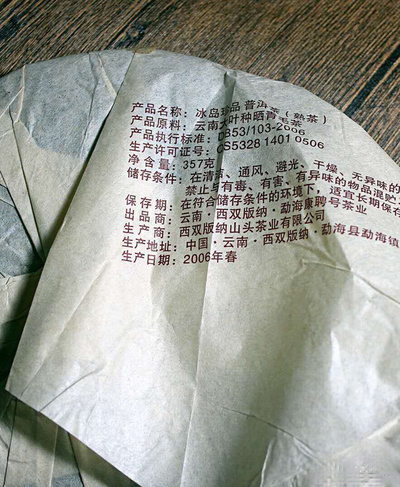 产品名称：冰岛珍品 普洱茶（熟茶）
产品原料：云南大叶种晒青毛茶
产品执行标准：DB53/103-2006
生产许可证号：QS5328 1401 0506
净 含 量：357克
储存条件：在清洁、通风、避光、干燥、无异味的
禁止与有毒、有害、有异味的物品混贮
保 存 期：在符合储存条件的环境下，适宜长期保存
出 品 商：云南·西双版纳·勐海康聘号茶业
生 产 商：西双版纳山头茶业有限公司
生产地址：中国·云南·西双版纳·勐海县勐海镇
生产日期：2006年春